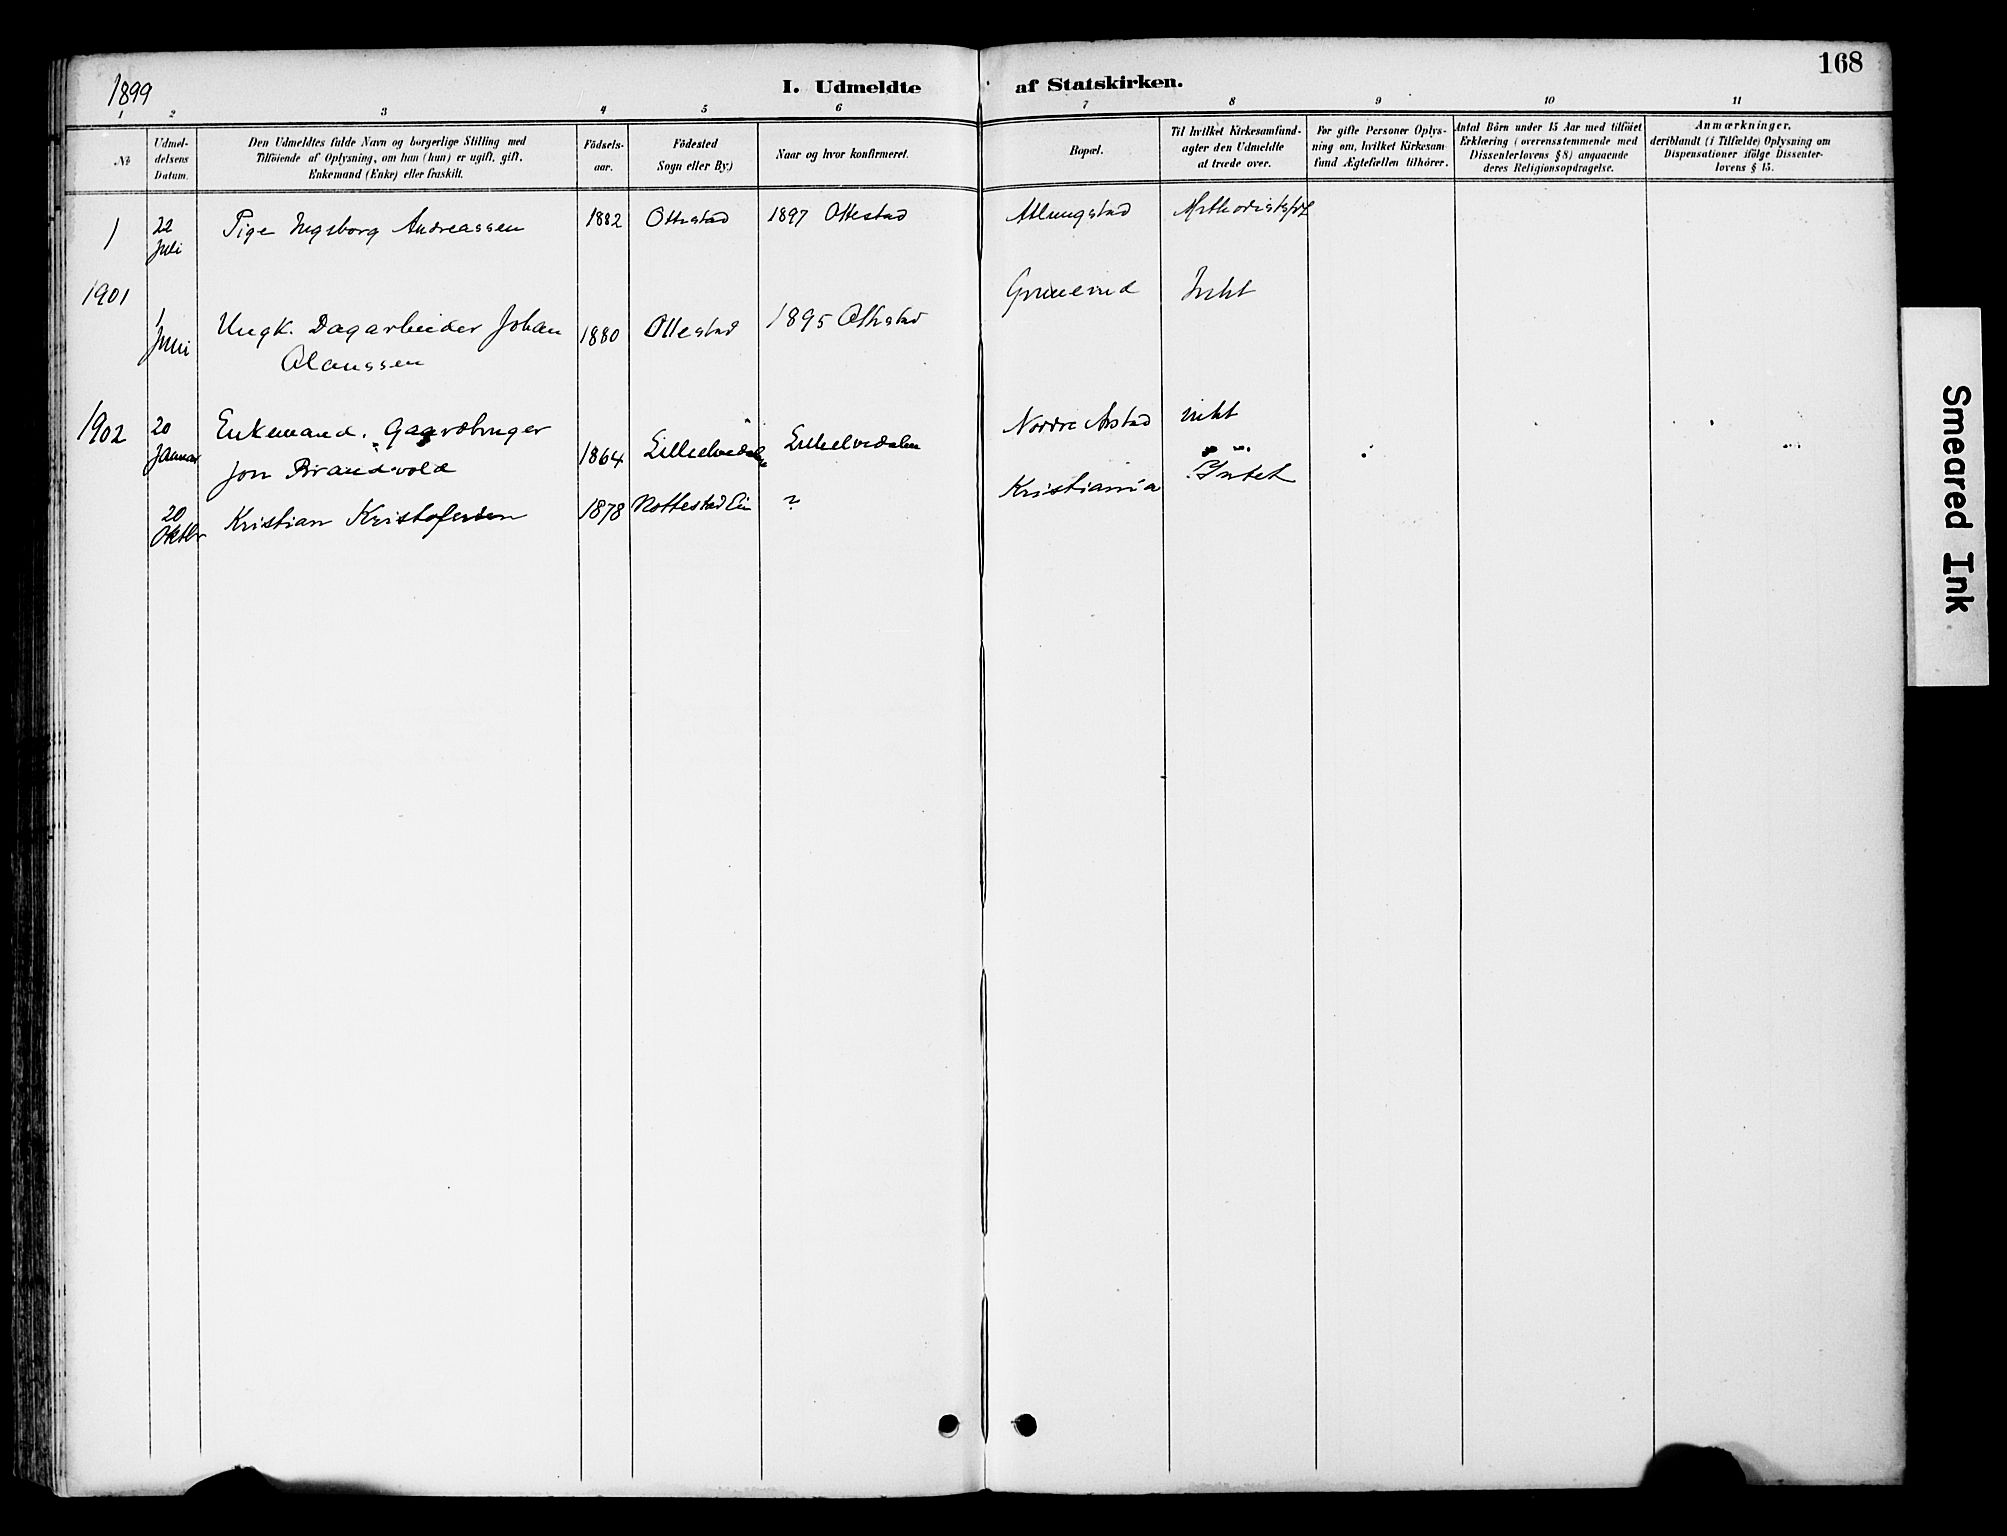 168
1899
I. Udmeldte af Statskirken.
1 2 3 4 5 6 7 8 9 10 11
№
Udmel-
delsens
Datum.
Den Udmeldtes fulde Navn og borgerlige Stilling med
Tilföiende af Oplysning, om han (hun) er ugift, gift,
Enkemand (Enke) eller fraskilt.
Födsels-
aar.
Födested
Sogn eller By.)
Naar og hvor konfirmeret.
Bopæl.
Til hvilket Kirkesamfund-
agter den Udmeldte
at træde over.
For gifte Personer Oplys-
ning om, hvilket Kirkesam-
fund Ægtefællen tilhörer.
Antal Börn under 15 Aar med tilföiet
Erklæring (overensstemmende med
Dissenterlovens § 8) angaaende
deres Religionsopdragelse.
Anmærkninger,
deriblandt (i Tilfælde) Oplysning om
Dispensationer ifölge Dissenter-
lovens § 15.
1 22 Pige Ingeborg Andreassen 1882 Ottestad 1897 Ottestad Atlungstad
Juli
1901
1 Ungk. Dagarbeider Johan 1880 Ottestad 1895 Ottestad Intet
Juni
Olaussen
1902 20 Enkemand. Gaardbruger Nordre Arstad intet
Januar Jon Brandvold 1864 Lilleelvedalen Lilleelvedalen
20 Kristian Kristofersen 1878 ? Kristiania Intet
Oktbr
Smeared Ink